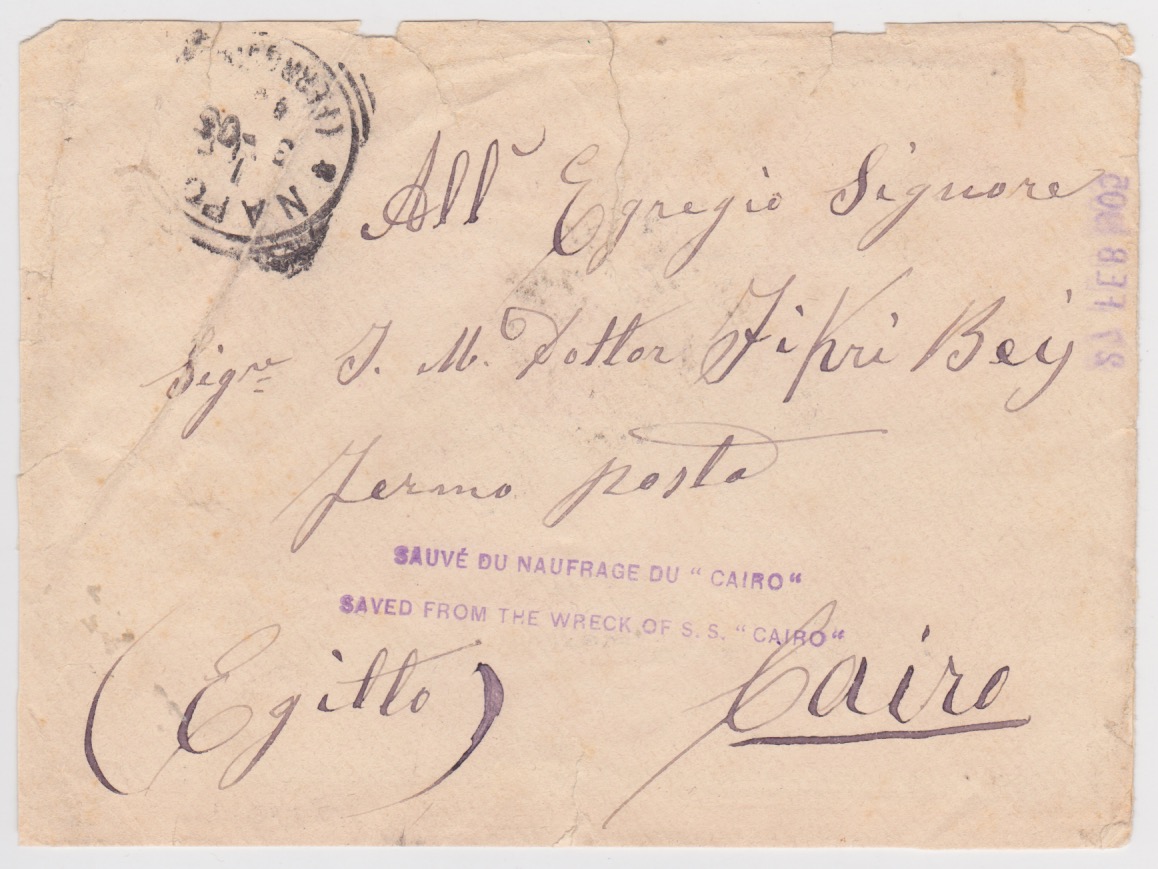 NAPO
(FERROVIA
8
5
05
All' Egregio Signore
Sigre J. M. Dottor Fikri Bey
fermo posta
SAUVÉ DU NAUFRAGE DU "CAIRO"
SAVED FROM THE WRECK OF S. S. "CAIRO"
(Egitto) Cairo
27 FEB 1905